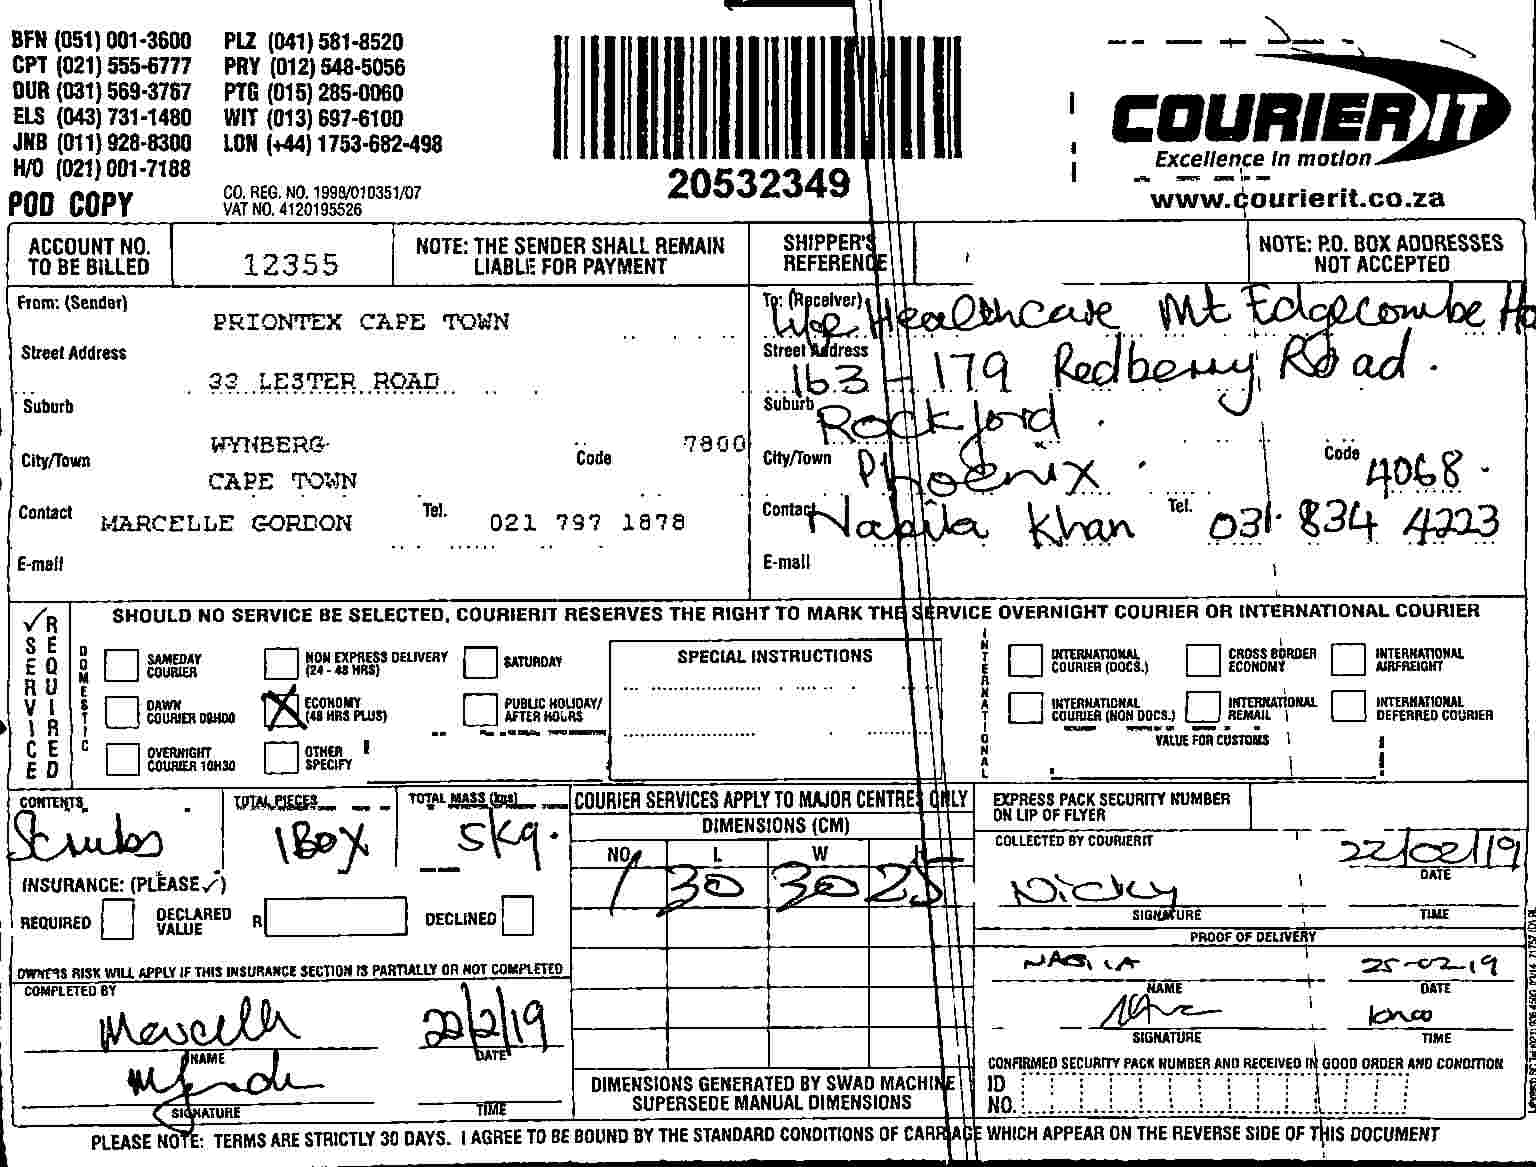 BFN (051) 001-3600 PLZ (041) 581-8520
CPT (021) 555-6777 PRY (012) 548-5056
DUR (031) 569-3767 PTG (015) 285-0060
ELS (043) 731-1480 WIT (013) 697-6100
JNB (011) 928-8300 LON (+44) 1753-682-498
H/O (021) 001-7188
POD COPY
CO. REG. NO. 1998/010351/07
VAT NO. 4120195526
20532349
COURIER IT
Excellence in motion
www.courierit.co.za
ACCOUNT NO. TO BE BILLED 12355
NOTE: THE SENDER SHALL REMAIN LIABLE FOR PAYMENT
SHIPPER'S REFERENCE
NOTE: P.O. BOX ADDRESSES NOT ACCEPTED
From: (Sender) PRIONTEX CAPE TOWN
Street Address 33 LESTER ROAD
Suburb WYNBERG
City/Town CAPE TOWN Code 7800
Contact MARCELLE GORDON Tel. 021 797 1878
E-mail
To: (Receiver) Life Healthcare Mt Edgecombe Ho
Street Address 163 - 179 Redberry Road.
Suburb Rockford.
City/Town Phoenix. Code 4068.
Contact Nabila Khan Tel. 031 834 4223
E-mail
SERVICE REQUIRED
SHOULD NO SERVICE BE SELECTED, COURIERIT RESERVES THE RIGHT TO MARK THE SERVICE OVERNIGHT COURIER OR INTERNATIONAL COURIER
DOMESTIC
SAMEDAY COURIER
NON EXPRESS DELIVERY (24 - 48 HRS)
SATURDAY
DAWN COURIER 08H00
ECONOMY (48 HRS PLUS)
PUBLIC HOLIDAY/ AFTER HOURS
OVERNIGHT COURIER 10H30
OTHER SPECIFY
SPECIAL INSTRUCTIONS
INTERNATIONAL
INTERNATIONAL COURIER (DOCS.)
CROSS BORDER ECONOMY
INTERNATIONAL AIRFREIGHT
INTERNATIONAL COURIER (NON DOCS.)
INTERNATIONAL REMAIL
INTERNATIONAL DEFERRED COURIER
VALUE FOR CUSTOMS
CONTENTS Scrubs
TOTAL PIECES 1 Box
TOTAL MASS (kgs) 5kg.
INSURANCE: (PLEASE ✓)
REQUIRED DECLARED VALUE R DECLINED
OWNERS RISK WILL APPLY IF THIS INSURANCE SECTION IS PARTIALLY OR NOT COMPLETED
COMPLETED BY
Marcelle 22/2/19
NAME DATE
SIGNATURE TIME
COURIER SERVICES APPLY TO MAJOR CENTRES ONLY
DIMENSIONS (CM)
NO. L W H
1 30 30 25
DIMENSIONS GENERATED BY SWAD MACHINE SUPERSEDE MANUAL DIMENSIONS
EXPRESS PACK SECURITY NUMBER ON LIP OF FLYER
COLLECTED BY COURIERIT 22/02/19
DATE
Nicky
SIGNATURE TIME
PROOF OF DELIVERY
25-02-19
NAME DATE
SIGNATURE TIME
CONFIRMED SECURITY PACK NUMBER AND RECEIVED IN GOOD ORDER AND CONDITION
ID NO.
PLEASE NOTE: TERMS ARE STRICTLY 30 DAYS. I AGREE TO BE BOUND BY THE STANDARD CONDITIONS OF CARRIAGE WHICH APPEAR ON THE REVERSE SIDE OF THIS DOCUMENT